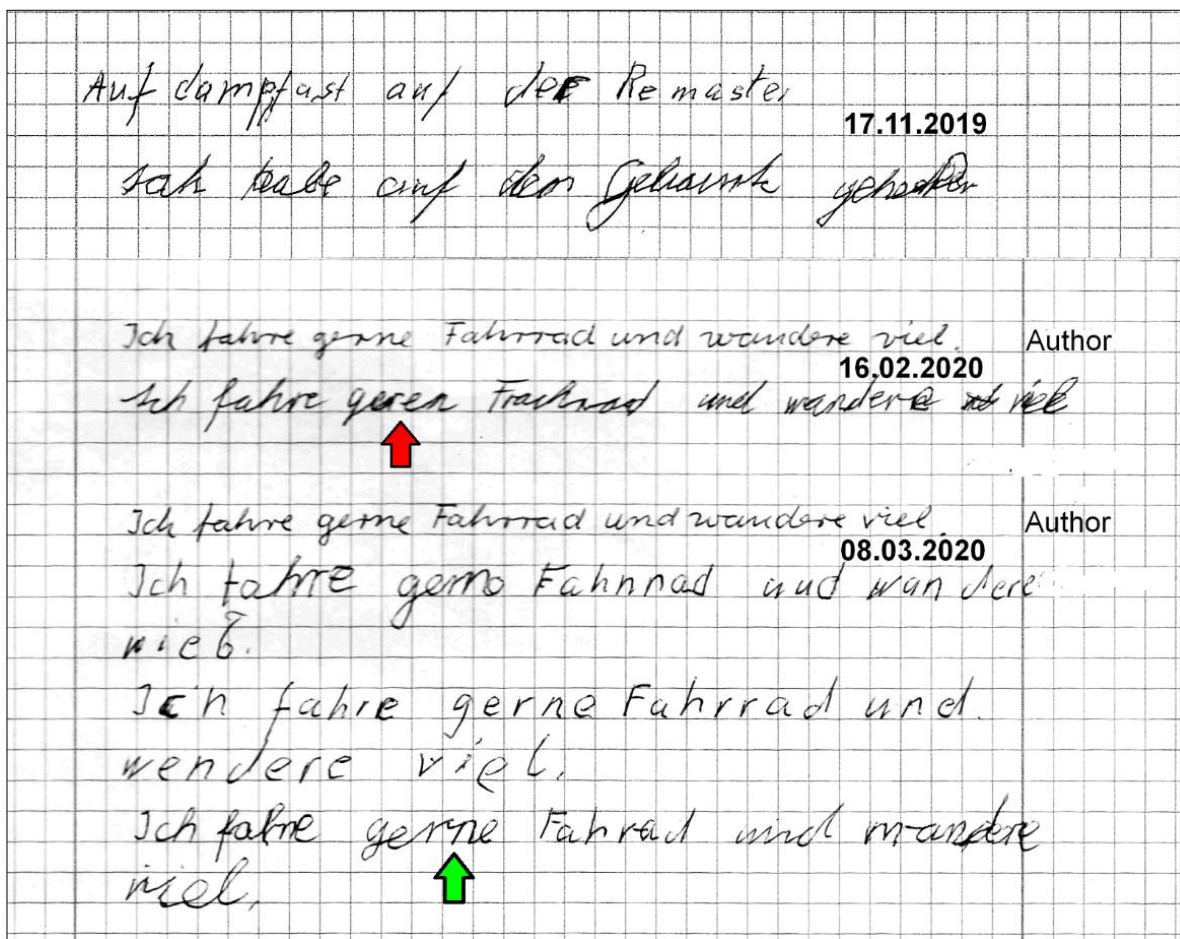 Auf dampfast auf der Remaster
17.11.2019
habe auf den gehoffen
Ich fahre gerne Fahrrad und wandere viel. Author
16.02.2020
Ich fahre geren Frachrad und wandere viel
Ich fahre gerne Fahrrad und wandere viel. Author
08.03.2020
Ich fahre gerno Fahnnad und wandere
vieb.
Ich fahre gerne Fahrrad und.
wendere viel.
Ich fahre gerne Fahrrad und wandere
viel.